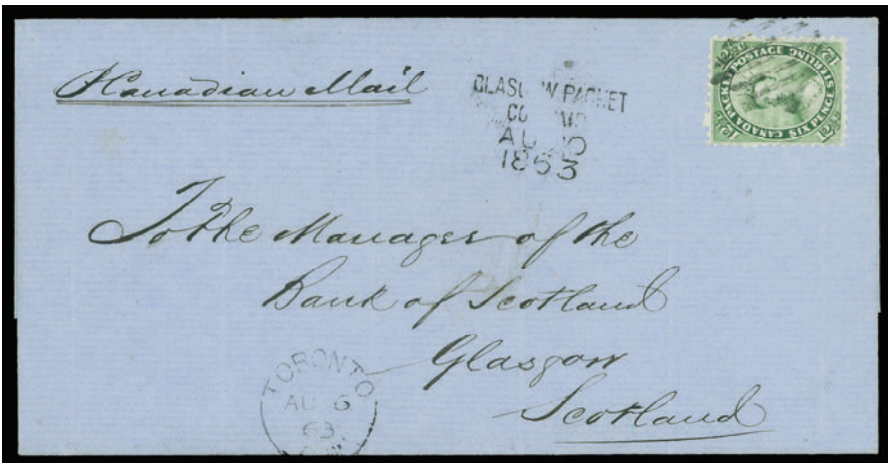 Canadian Mail
GLASGOW PACKET
AU 10
1863
CANADA PACKET POSTAGE
SIX PENCE STERLING
12½
To the Manager of the
Bank of Scotland
Glasgow
Scotland
TORONTO
AU 6
63